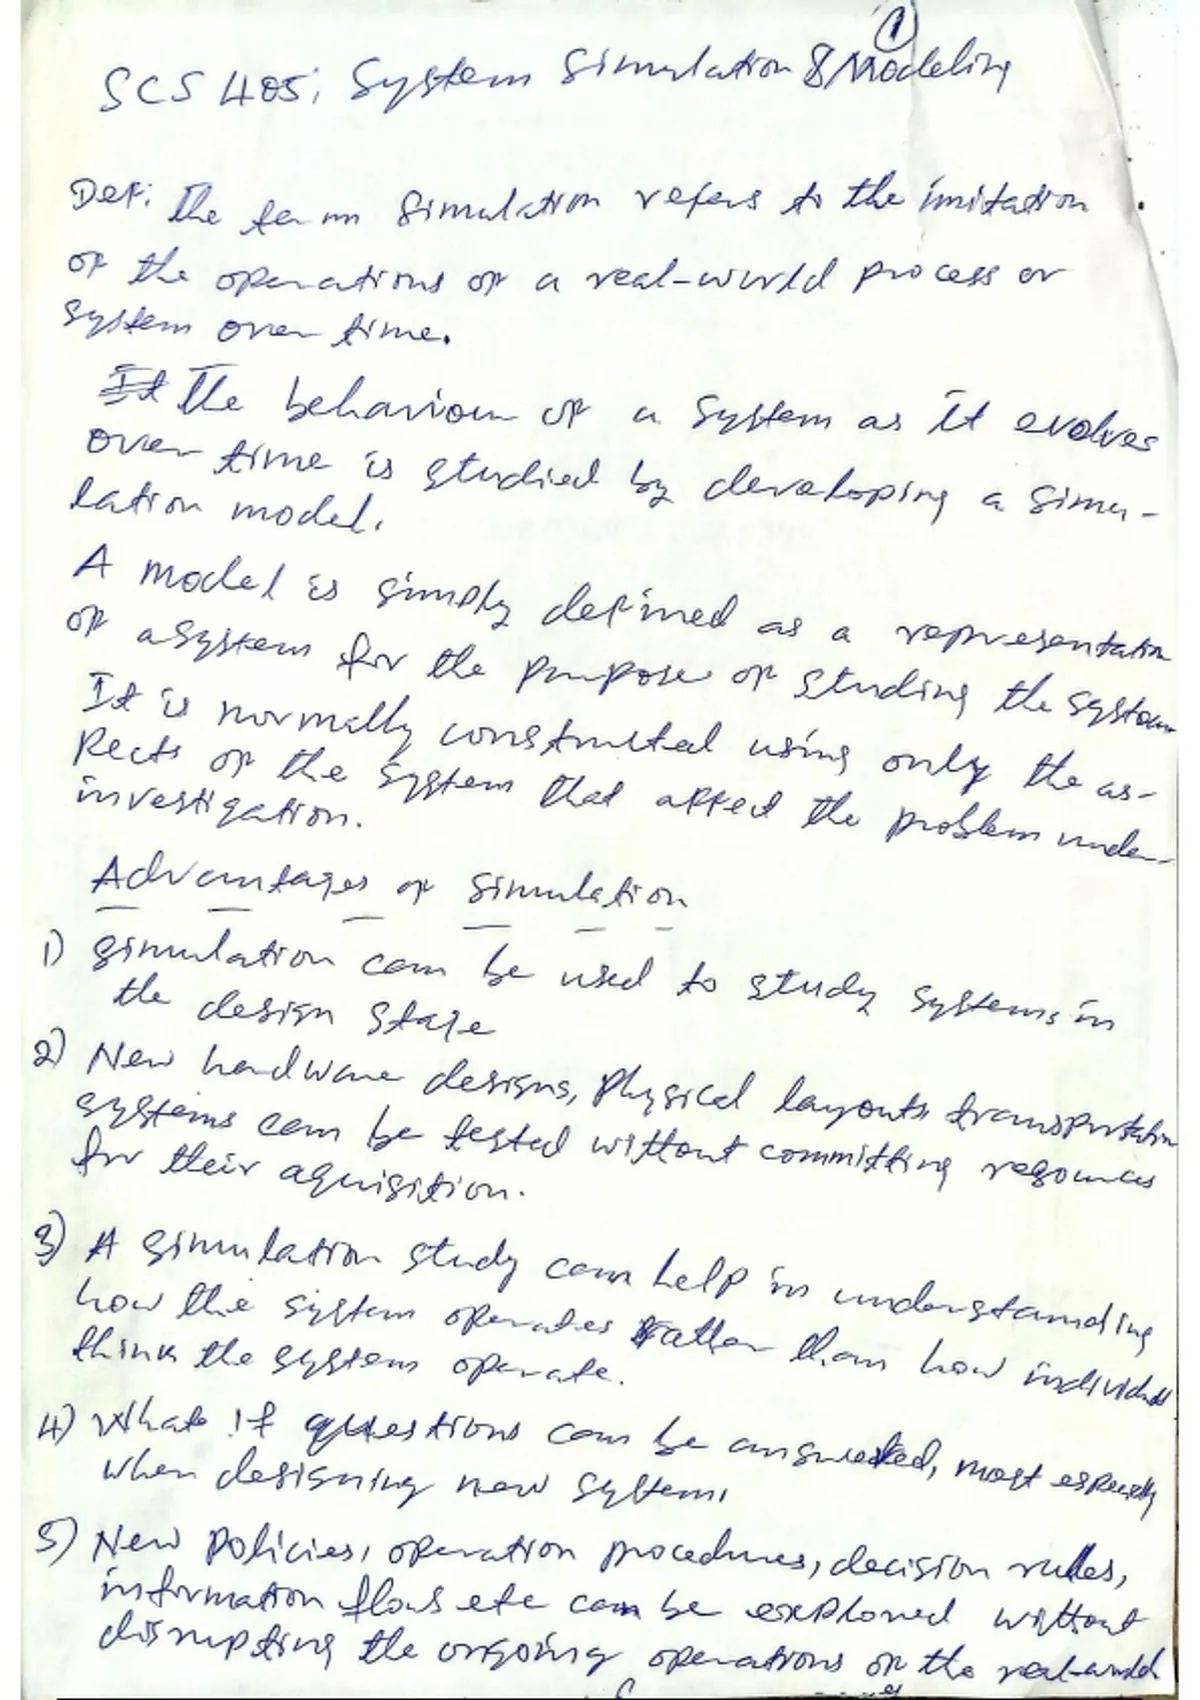 1
SCS 405; System Simulation & Modeling
Def: The term Simulation refers to the imitation
of the operations of a real-world process or
system over time.
It The behaviour of a System as it evolves
over time is studied by developing a simu-
lation model.
A model is simply defined as a representation
of a system for the purpose of studing the system
It is normally constructed using only the as-
pects of the system that affect the problem under
investigation.
Advantages of simulation
1) simulation can be used to study systems in
the design stage
2) New hardware designs, Physical layouts transportation
systems can be tested without committing resources
for their aquisition.
3) A simulation study can help in understanding
how the system operates rather than how individuals
think the system operate.
4) What if questions can be answered, most especially
when designing new system,
5) New Policies, operation procedures, decision rules,
information flows etc can be explored without
disrupting the ongoing operations of the real-world